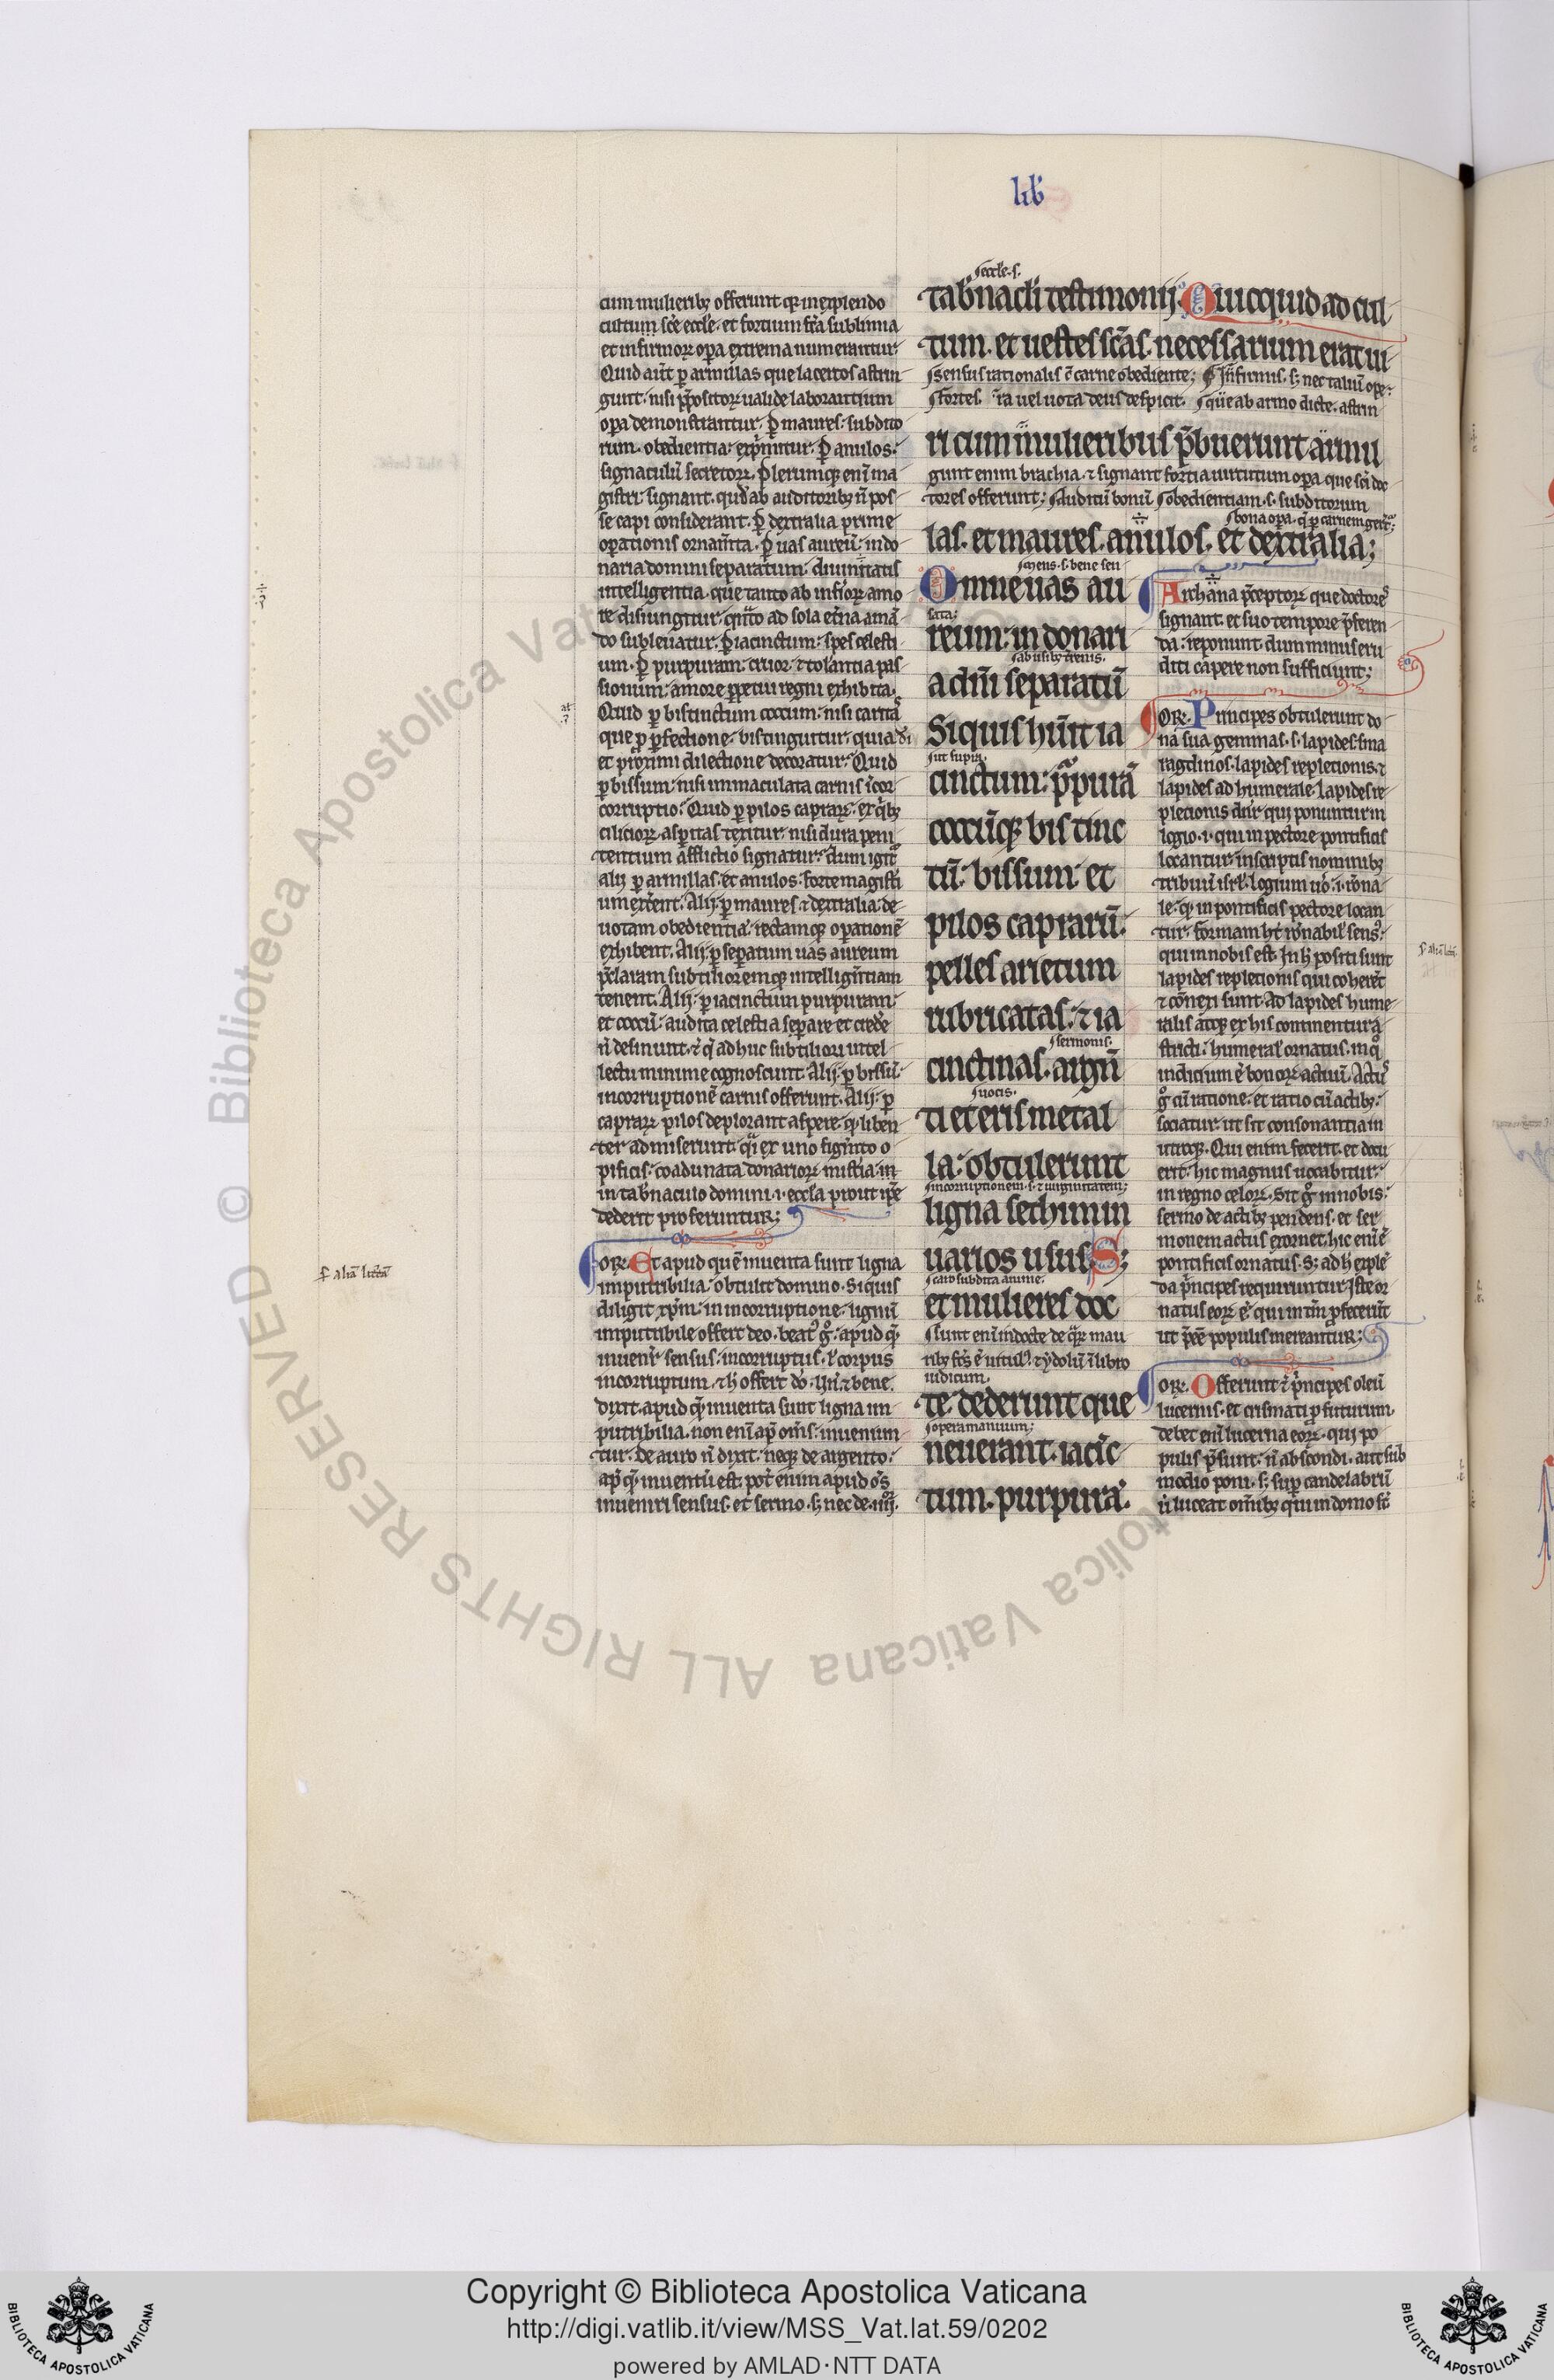 lib̅
cum mulierib; offerunt q; in explendo
cultum sc̅e eccl̅e. et fortium fr̅a sublimia
et infirmoꝝ opa extrema numerantur:
Quid aut̅ p armillas que lacertos astrin
gunt. nisi p̅positoꝝ ualide laborantium
opa demonstrantur. P maures: subdito
rum. obedientia: exp̅mitur. P anulos:
signaculu̅ secretoꝝ. Plerumq; eni̅ ma
gistri: signant. quod ab auditorib; n̅ pos
se capi considerant. P dextralia prime
opationis ornam̅ta. P uas aureu̅: in do
naria domini separatum: diuinitatis
intelligentia. que tanto ab inferioꝝ amo
re disiungitur. qu̅to ad sola et̅na ama̅
do subleuatur. P iacinctum: spes celesti
um. P purpuram: cruor. ⁊ tol̅antia pas
sionum: amore ppetui regni exhibita.
Quid p bistinctum coccum: nisi carita̅s
que p pfectione. bis tinguitur. quia di̅
et proximi dilectione decoratur: Quid
p bissum: nisi immaculata carnis i̅cor
corruptio: Quid p pilos capraꝝ: ex q̅b;
cilicioꝝ aspitas texitur. nisi dura peni
tentium afflictio signatur: dum igit̅
alij p armillas. et anulos: forte magist̅i
um ex̅cent. Alij. p maures ⁊ dextralia: de
uotam obedientia̅: rectamq; opatione̅
exhibent. Alij: p sepatum uas aureum
p̅claram subtilioremq; intellige̅tiam
tenent. Alij: p iacinctum purpuram:
et coccu̅: audita celestia sperare et crede̅
n̅ desinunt. ⁊ q̅ ad huc subtiliori intel
lectu minime cognoscunt. Alij: p bissu̅:
incorruptione̅ carnis offerunt. Alij: p
capraꝝ pilos deplorant aspere. q̅. liben
ter admiserunt. q̅i ex uno figm̅to o
pificis: coadunata donarioꝝ mist̅ia: in
in tab̅naculo domini .i. eccl̅a prout ip̅e
dederit proferuntur:
OR. Et apud que̅ inuenta sunt ligna
imputribilia: obtulit domino. Si quis
diligit xp̅m: in incorruptione: lignu̅
imputribile offert deo. beat9 g̊: apud q̅.
inuenit̅ sensus: incorruptus. l̅ corpus
incorruptum. ⁊ h̅ offert do̅. Un̅. ⁊ bene
dixit. apud q̅. inuenta sunt ligna im
putribilia. non eni̅ ap̅ om̅s: inueniun
tur. de auro n̅ dixit. neq; de argento:
ap̅ q̅. inuentu̅ est. pot̅ enim apud o̅s
inueniri sensus. et sermo. s; nec de .iiij.
eccl̅e .s.
tab̅nacli̅ testimonij: Quicquid ad cul
tum. et uestes sc̅as. necessarium erat. ui
Sensus rationalis c̅ carne obediente; Infirmis .s; nec taliu̅ ope
fortes. ra uel uota deus despicit. que ab armo dicte. astrin
ri cum mulieribus p̅buerunt armil
gunt enim brachia. ⁊ signant fortia uirtutum opa. que sc̅i doc
tores offerunt; Auditu̅ bonu̅ obedientiam .s. subditorum
bona opa. q̅ p carnem gerit̅;
las. et maures. anulos. et dextralia;
mens .s. bene sen
Omne uas au
sata:
reum: in donari
ab usib; t̅renis.
a dn̅i separatu̅
Siquis hu̅it ia
ut supra.
cinctum: p̅purā
coccu̅q; bis tinc
tu̅: bissum: et
pilos capraru̅.
pelles arietum
rubricatas. ⁊ ia
sermonis.
cinctinas. argu̅
uocis.
ti et eris metal
la: obtulerunt
incorruptionem .s. ⁊ uirginitatem;
ligna sethim in
uarios usus; S;
caro subdita anime.
et mulieres doc
Sunt eni̅ indocte de q̅ꝝ mau
rib; fc̅s e̅ uitul9. ⁊ ydolu̅ i̅ libro
iudicum.
te. dederunt que
opera manuum;
neuerant. iaci̅c
tum. purpura̅.
Archana p̅ceptoꝝ que doctore̅s
signant. et suo tempore p̅feren
da: reponunt. dum minus eru
diti capere non sufficiunt;
OR. Principes obtulerunt do
na sua gemmas .s. lapides: sma
ragdinos. lapides repletionis. ⁊
lapides ad humerale. Lapides re
pletionis dn̅r qui ponuntur in
logio .i. qui in pectore pontificis
locantur: inscriptis nominib;
tribuu̅ isrl̅. Logium u̅o .i. ro̅na
le. q̅ in pontificis pectore locan
tur. formam h̅t ro̅nabil̅ sens9:
qui in nobis est. In h̅ positi sunt
lapides repletionis qui coheret̅
⁊ co̅nexi sunt. ad lapides hume
ralis atq; ex his continentur a
stricti: humeral̅ ornatus. in q̅
indicium e̅ bonoꝝ actuu̅. Act9
g̊ cu̅ ratione: et ratio cu̅ actib;:
sociatur. ut sit consonantia in
utroq;. Qui enim fecerit. et docu
erit: hic magnus uocabitur:
in regno celoꝝ. Sit g̊ in nobis:
sermo de actib; pendens. et ser
monem actus exornet. hic eni̅ e̅
pontificis ornatus. S; ad h̅ exple̅
da p̅ncipes requiruntur. Iste or
natus eoꝝ e̅: qui in tm̅ pfecerint
ut p̅ee̅ populis mereantur;
OR. Offerunt ⁊ p̅ncipes oleu̅
lucernis. et crismati pfuturum.
debet eni̅ lucerna eoꝝ. qui po
pulis p̅sunt: n̅ abscondi. aut sub
modio poni. s; sup candelabru̅
ut luceat om̅ib; qui in domo s̅t
al̅
f̅ alia̅ litt̅a̅
© Biblioteca Apostolica Vaticana ALL RIGHTS RESERVED
Copyright © Biblioteca Apostolica Vaticana
http://digi.vatlib.it/view/MSS_Vat.lat.59/0202
powered by AMLAD·NTT DATA
BIBLIOTECA APOSTOLICA VATICANA
BIBLIOTECA APOSTOLICA VATICANA